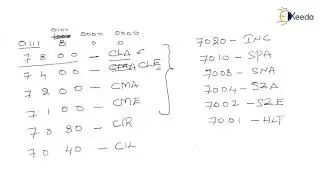 Ekeeda
0100
0000 0000
0111 8 0 0
7 8 0 0 — CLA
7 4 0 0 — CLE
7 2 0 0 — CMA
7 1 0 0 — CME
7 0 8 0 — CIR
7 0 4 0 — CIL
7020 — INC
7010 — SPA
7008 — SNA
7004 — SZA
7002 — SZE
7001 — HLT